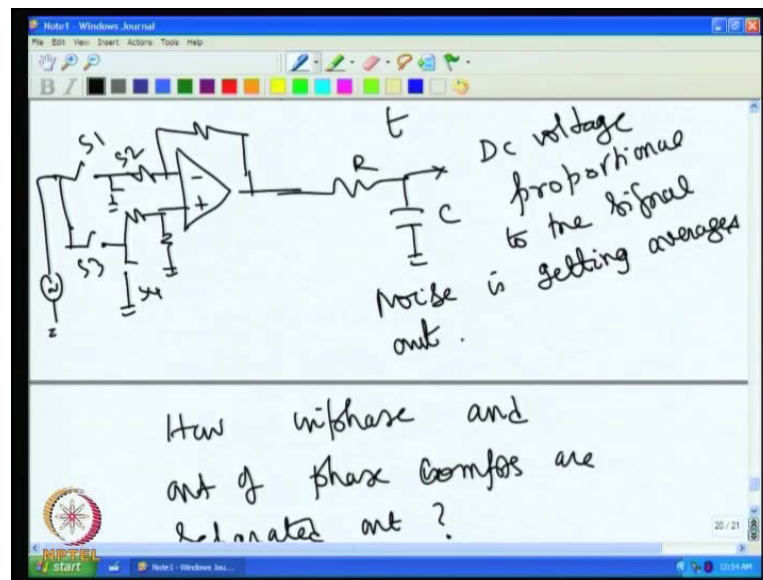 Note1 - Windows Journal
File Edit View Insert Actions Tools Help
B I
t
S1
S2
S3
S4
-
+
R
C
DC voltage
proportional
to the signal
Noise is getting averages
out.
How inphase and
out of phase comps are
out ?
20 / 21
NPTEL
start
Note1 - Windows Jou...
12:54 AM